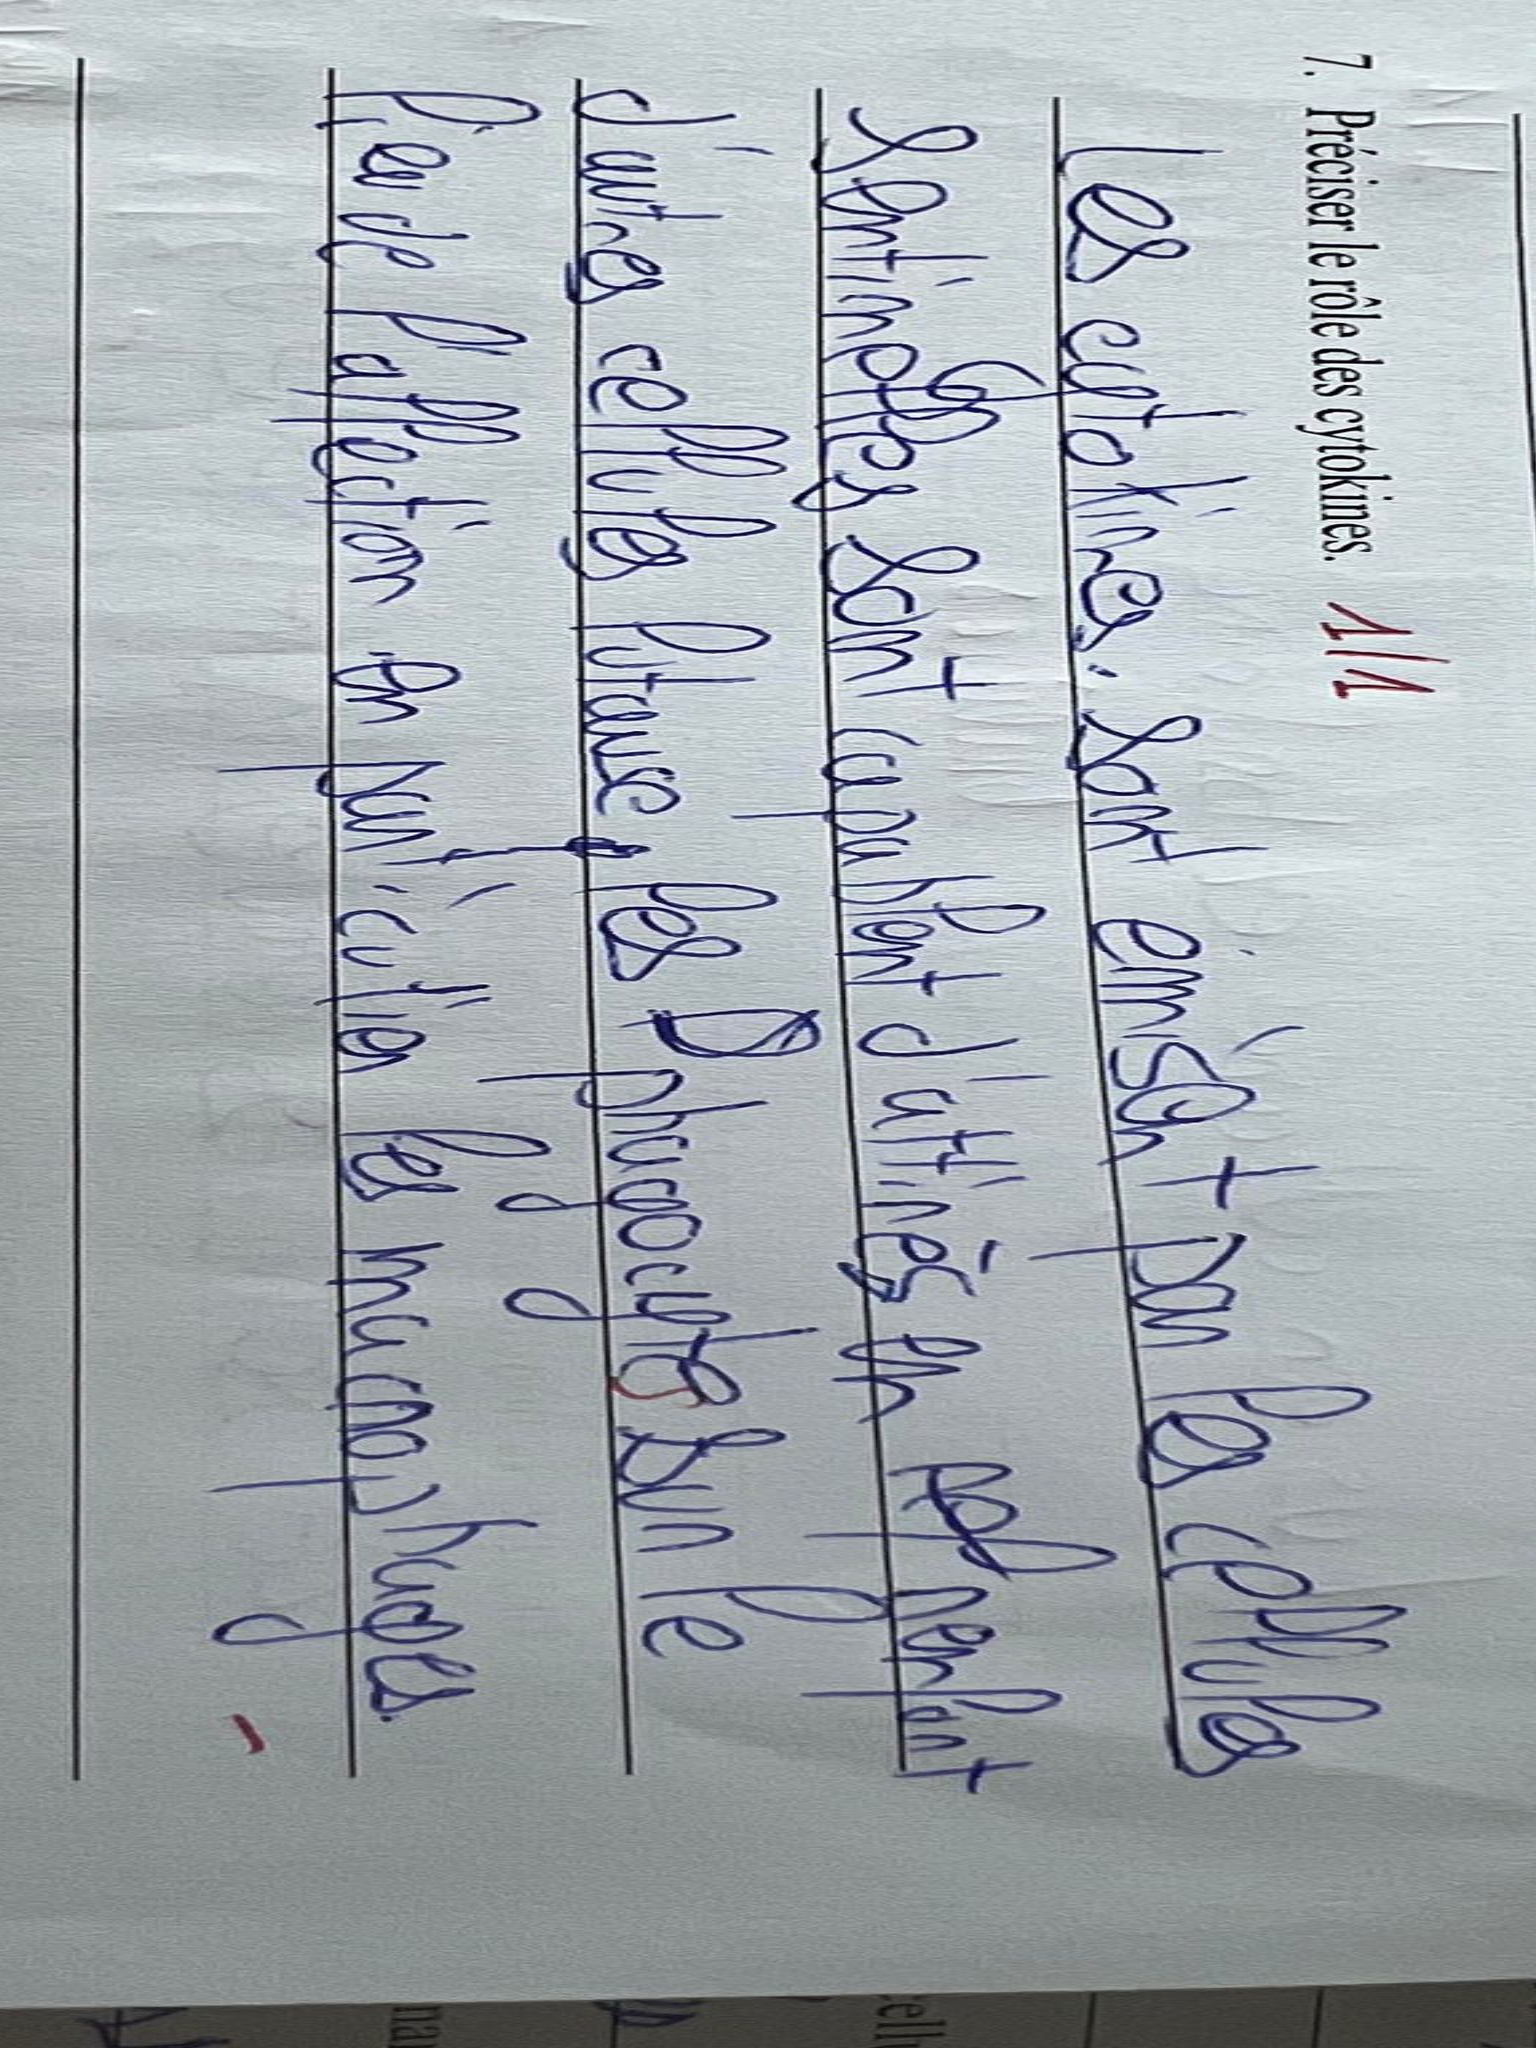 7. Préciser le rôle des cytokines. 1/1
Les cytokines sont émisent par les cellules
sentinelles sont capablent d'attinés en renfont
d'autres cellules les phagocytes sur le
lieu de l'affection en particulier les macrophages.